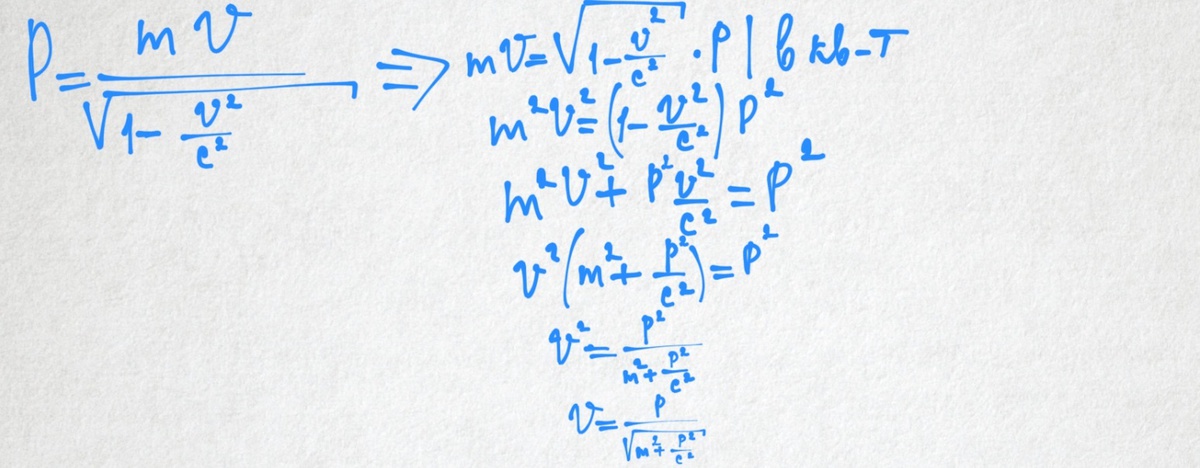 P = \frac{mv}{\sqrt{1 - \frac{v^2}{c^2}}} => mv = \sqrt{1 - \frac{v^2}{c^2}} · P | в кв-т
m^2 v^2 = (1 - \frac{v^2}{c^2}) P^2
m^2 v^2 + \frac{P^2 v^2}{c^2} = P^2
v^2 (m^2 + \frac{P^2}{c^2}) = P^2
v^2 = \frac{P^2}{m^2 + \frac{P^2}{c^2}}
v = \frac{P}{\sqrt{m^2 + \frac{P^2}{c^2}}}